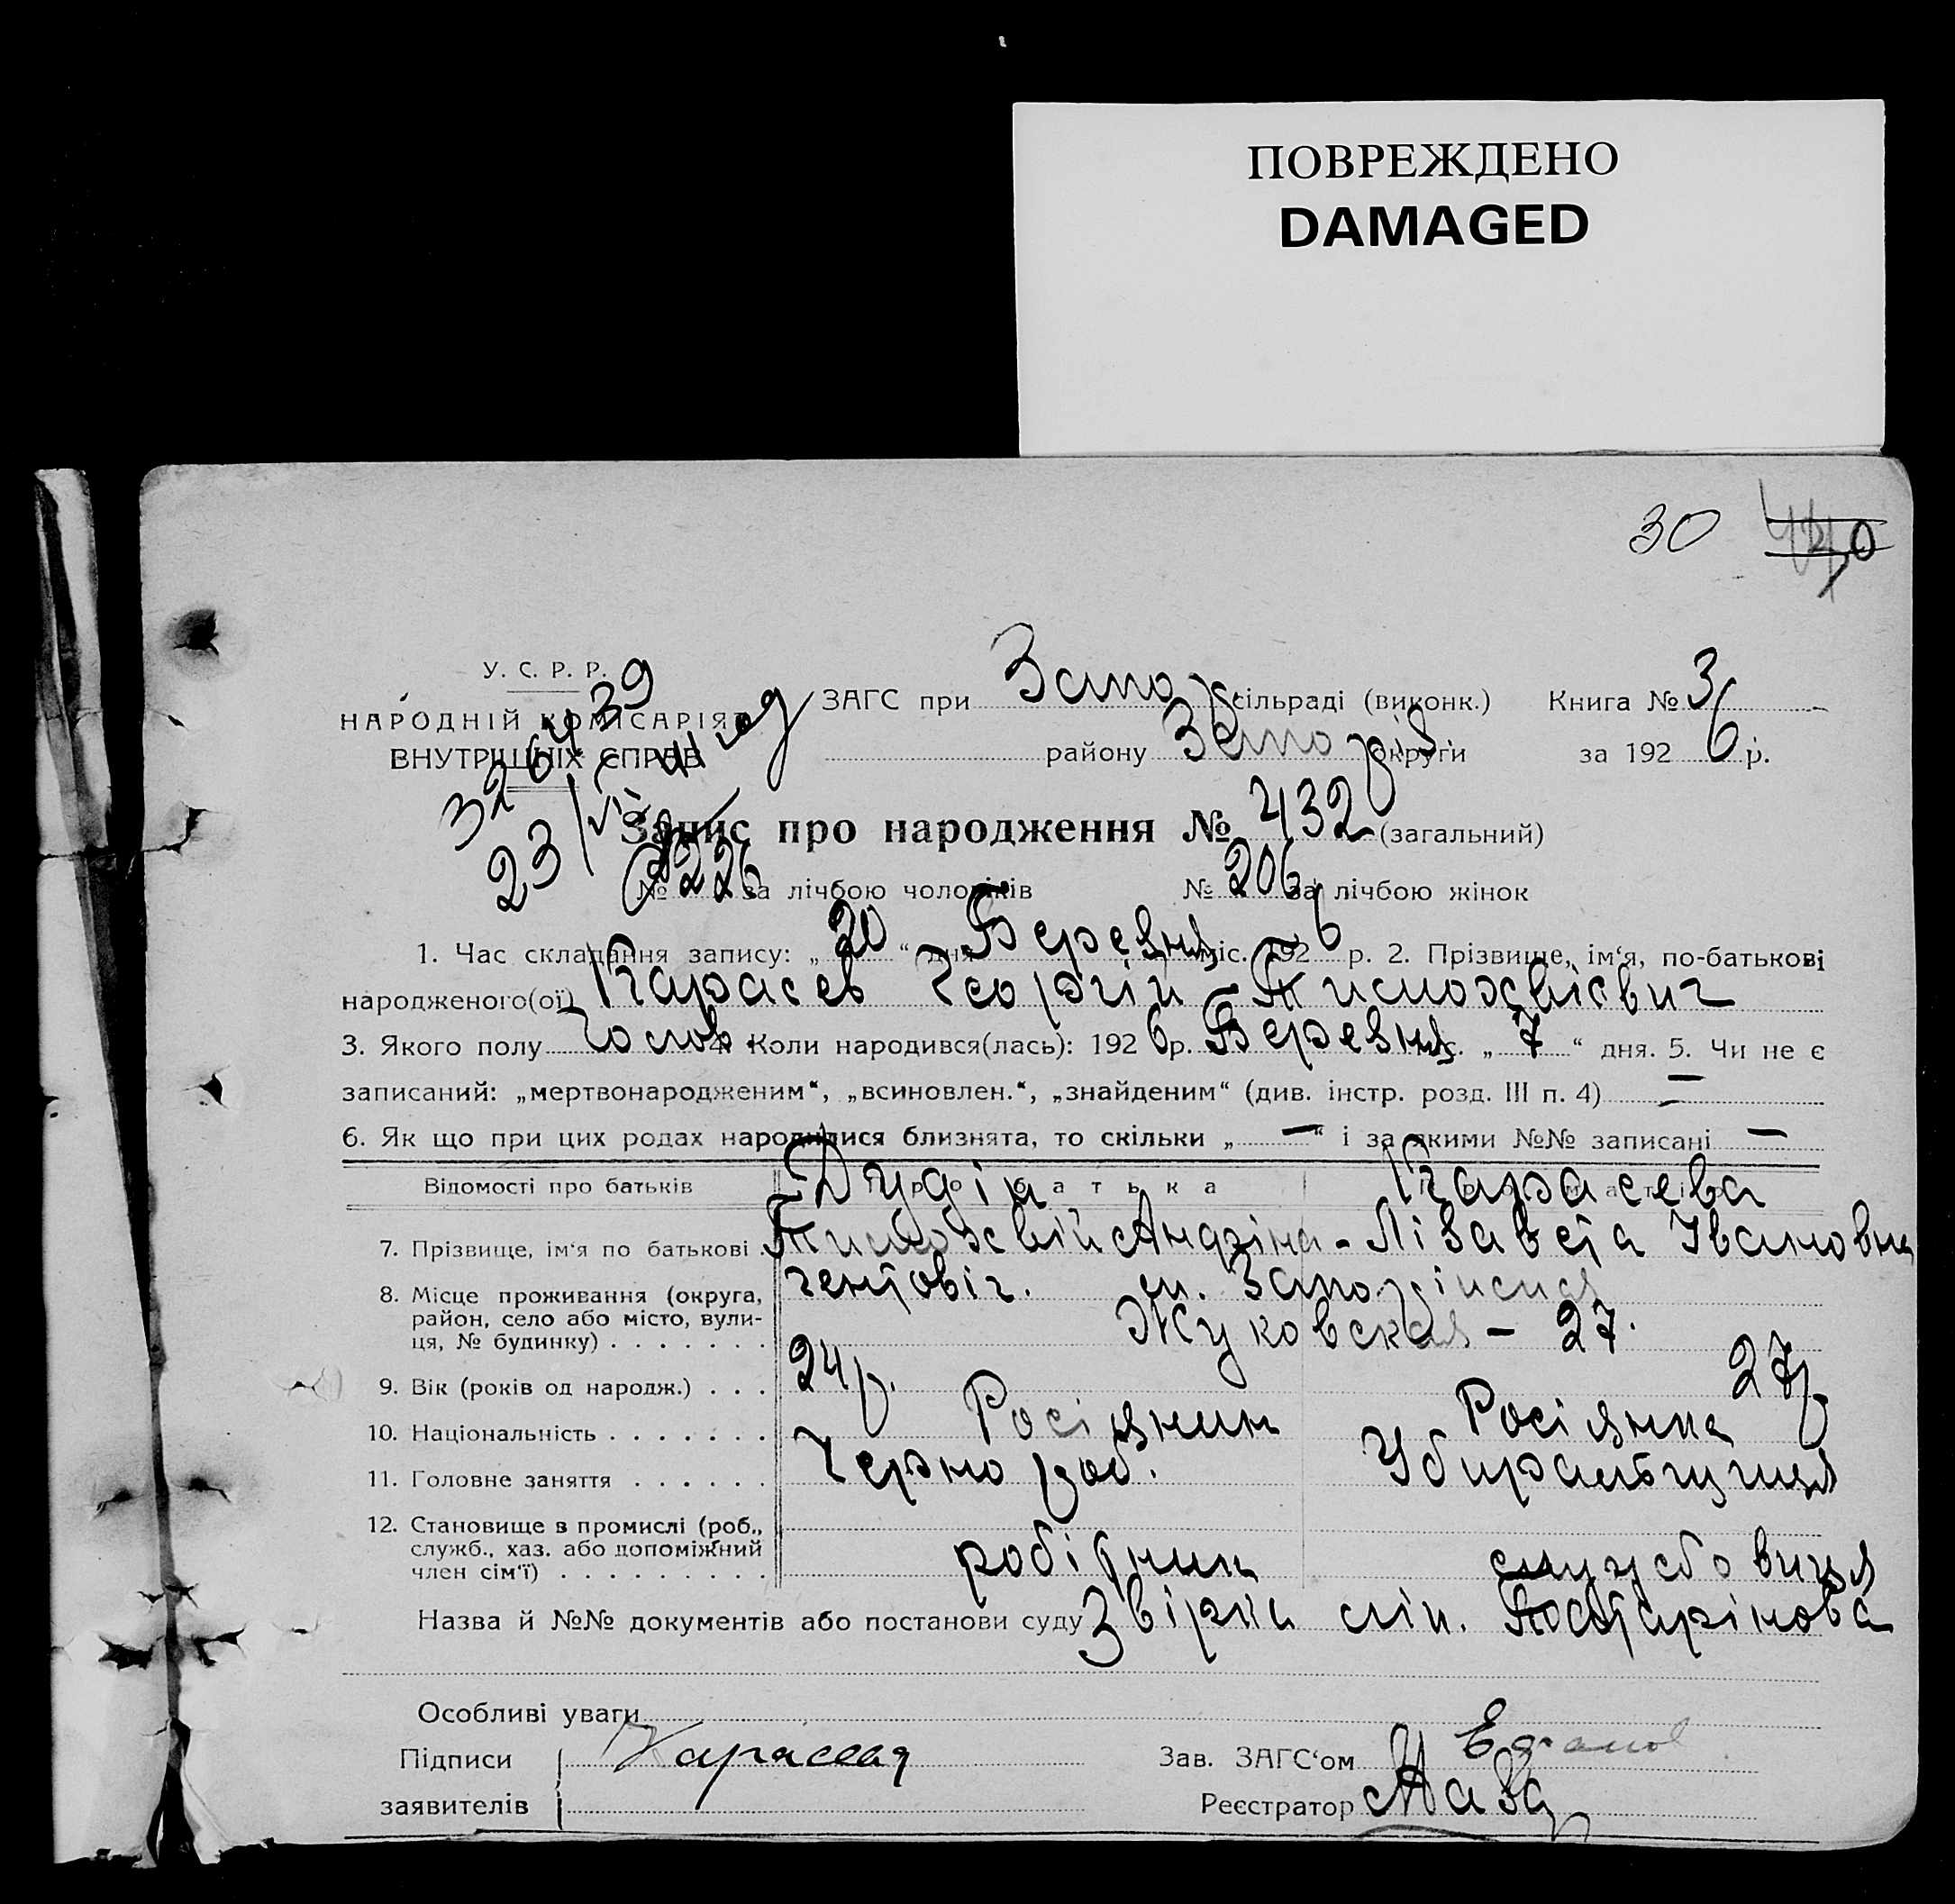 ПОВРЕЖДЕНО
DAMAGED
30
У. С. Р. Р.
НАРОДНІЙ КОМІСАРІЯТ
ВНУТРІШНІХ СПРАВ
ЗАГС при Запор сільраді (виконк.) Книга № 3
району Запоріз. округи за 1926 р.
Запис про народження № 432 (загальний)
№ 226 за лічбою чоловіків № 206 за лічбою жінок
1. Час складання запису: „20“ дня Березня міс. 1926 р. 2. Прізвище, ім‘я, по-батькові
народженого(ої) Карасев Георгій Тимохвієвич
3. Якого полу Чолов. 4. Коли народився(лась): 1926 р. Березня міс. „7“ дня. 5. Чи не є
записаний: „мертвонародженим“, „всиновлен.“, „знайденим“ (див. інстр. розд. III п. 4) —
6. Як що при цих родах народилися близнята, то скільки „—“ і за якими №№ записані —
Відомості про батьків Про батька Про матір
Дудін Карасева
7. Прізвище, ім‘я по батькові Тимохвій Лізавета Івановна
8. Місце проживання (округа, район, село або місто, вулиця, № будинку) м. Запоріжжя
Жуковская – 27.
9. Вік (років од народж.) 24 р. 27 р.
10. Національність Росіянин Росіянка
11. Головне заняття Чернороб. Убиральниця
12. Становище в промислі (роб., служб., хаз. або допоміжний член сім‘ї) робітник службовиця
Назва й №№ документів або постанови суду
Особливі уваги
Підписи Карасева Зав. ЗАГС‘ом
заявителів Реєстратор